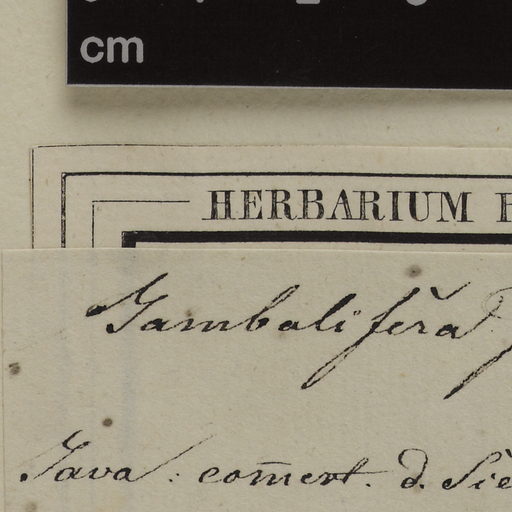 cm
HERBARIUM
Jambolifera
Java. com̅ert. d.